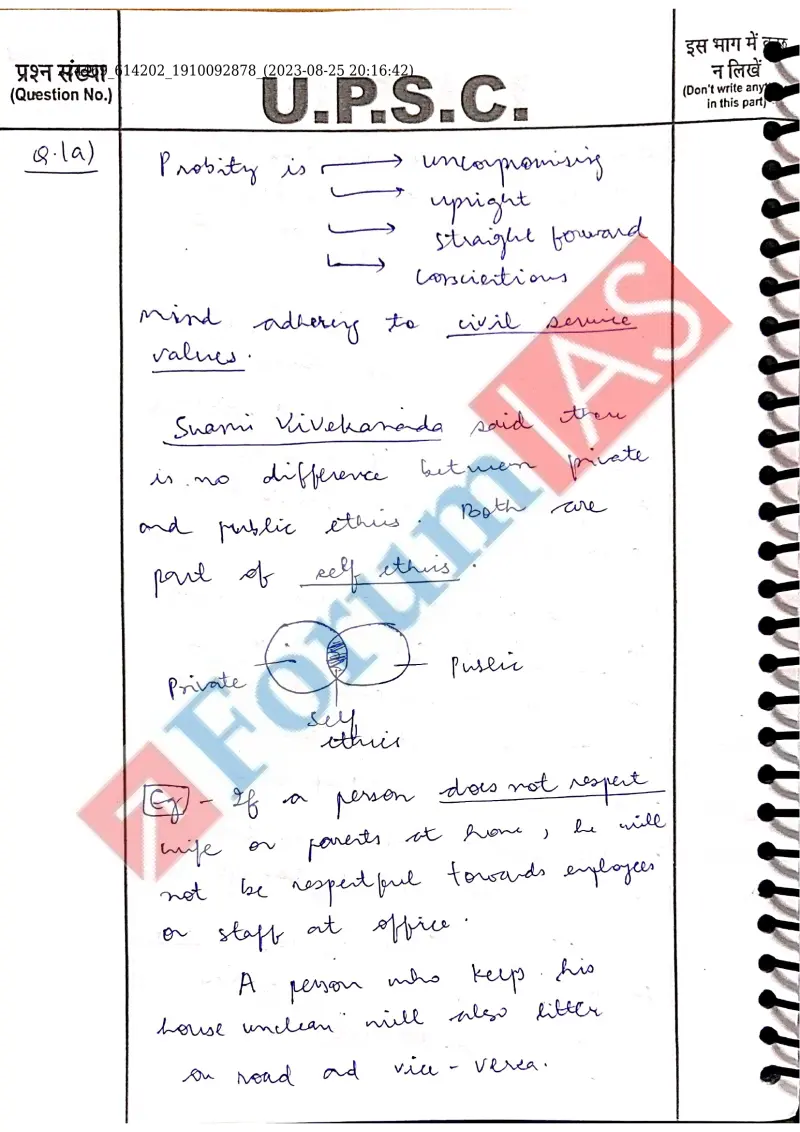 प्रश्न संख्या
(Question No.)
_614202_1910092878_(2023-08-25 20:16:42)
U.P.S.C.
इस भाग में कुछ
न लिखें
(Don't write any
in this part)
Q.1(a)
Probity is → uncompromising
→ upright
→ straight forward
→ conscientious
mind adhering to civil service
values.
Swami Vivekananda said there
is no difference between private
and public ethics. Both are
part of self ethics.
Private
Public
Self
ethics
Eg - If a person does not respect
wife or parents at home, he will
not be respectful towards employees
or staff at office.
A person who keep his
house unclean will also litter
on road ad vice-versa.
7 ForumIAS